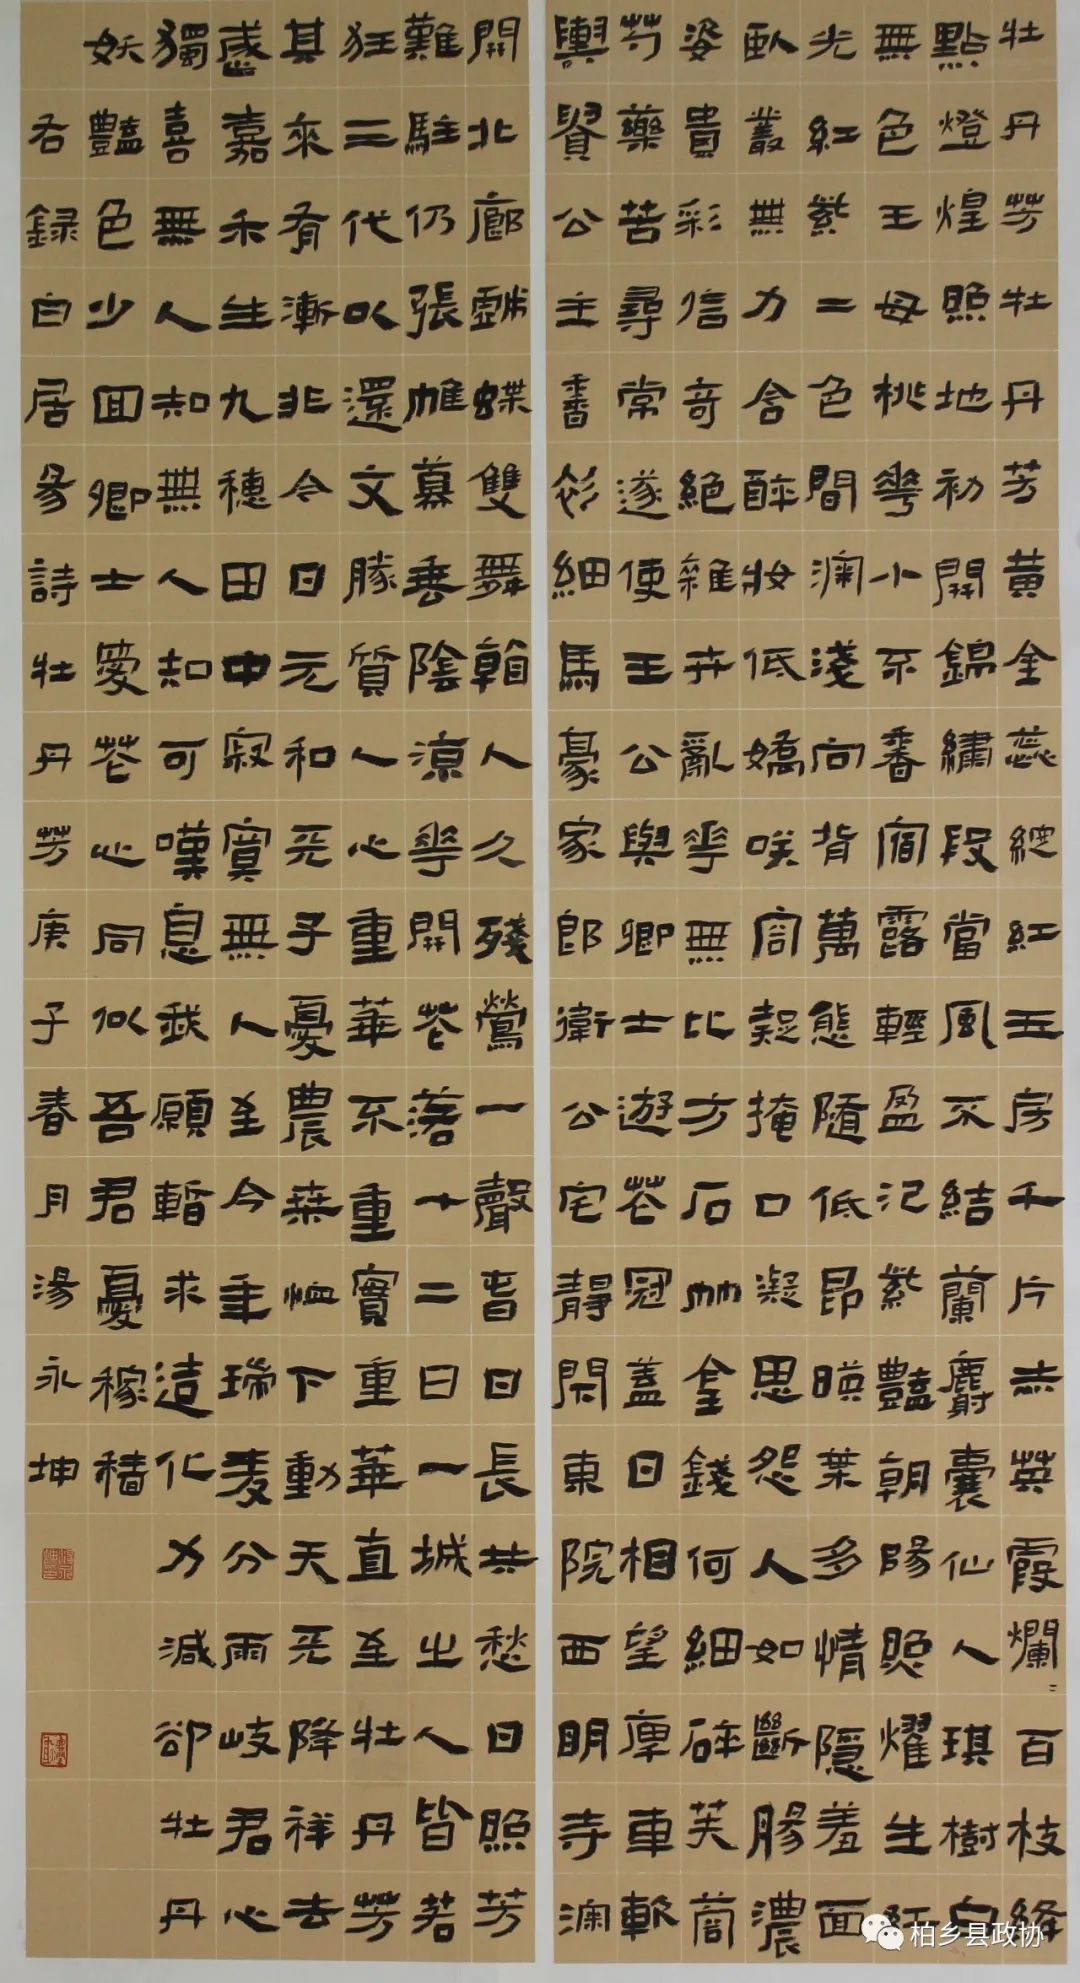 牡丹芳牡丹芳黃金蕊綻紅玉房千片赤英霞爛〻百枝絳
點燈煌照地初開錦繡段當風不結蘭麝囊仙人琪樹白
無色王母桃華小不香宿露輕盈氾紫豔朝陽照耀生紅
光紅紫二色間深淺向背萬態隨低昂映葉多情隱羞面
臥叢無力含醉妝低嬌咲容疑掩口凝思怨人如斷腸濃
姿貴彩信奇絕雜卉亂華無比方石竹金錢何細碎芙蓉
芍藥苦尋常遂使王公與卿士遊花冠蓋日相望庳車軟
輿貴公主香衫細馬豪家郎衛公宅靜閉東院西明寺深
開北廊戲蝶雙舞看人久殘鶯一聲春日長共愁日照芳
難駐仍張帷幕垂陰涼華開花落十二日一城之人皆若
狂三代以還文勝質人心重華不重實重華直至牡丹芳
其來有漸非今日元和天子憂農桑恤下動天天降祥去
歲嘉禾生九穗田中寂寞無人至今年瑞麥分兩岐君心
獨喜無人知無人知可嘆息我願暫求造化力減卻牡丹
妖豔色少回卿士愛花心同似吾君憂稼穡
右錄白居易詩牡丹芳庚子春月湯永坤
柏乡县政协